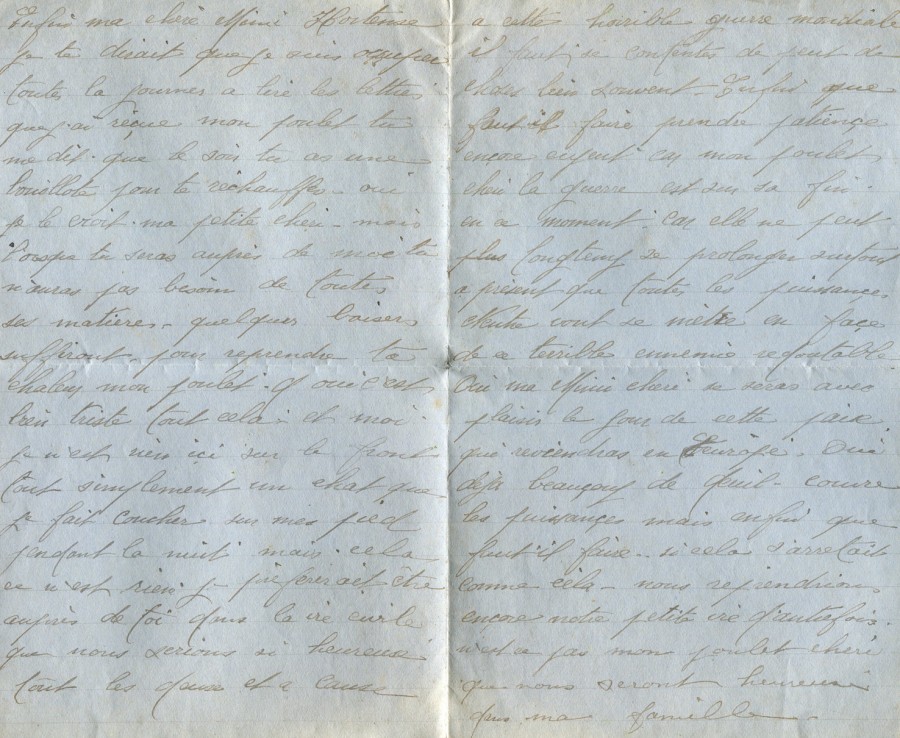 Enfin ma chère Mimi Hortense
je te dirait que je suis occupée
toutes la journer a lire les lettres
que j'ai reçue mon poulet tu
me dit que le soir tu as une
bouillote pour te réchauffer - oui
je le croit ma petite chéri - mais
lorsque tu seras auprès de moi tu
n'auras pas besoin de toutes
ses matières - quelques baisers
suffiront pour reprendre ta
chaleur mon poulet. Oui c'est
bien triste tout cela. et moi
je n'est rien ici sur le front
tout simplement un chat que
je fait coucher sur mes pied
pendant la nuit mais cela
ce n'est rien je préfererait être
auprès de toi dans la vie civile
que nous serions si heureux
tout les deux et a cause
a cette horrible guerre mondiale
il faut se contenter de peut de
choses bien souvent - Enfin que
faut il faire prendre patience
encore car mon poulet
chéri la guerre est sur sa fin
en ce moment. car elle ne peut
plus longtemp se prolonger surtout
a présent que toutes les puissances
neutre vont se mètre en façe
de ce terrible ennemie redoutable
Oui ma Mimi chéri se seras avec
plaisir le jour de cette paix
qui reviendras en Europe. Oui
déjà beaucoup de deuil - couvre
les puissançes mais enfin que
faut'il faire - si cela s'arretait
comme cela - nous reprendrions
encore notre petite vie d'autrefois.
n'est ce pas mon poulet chéri
que nous seront heureux
dans ma famille.